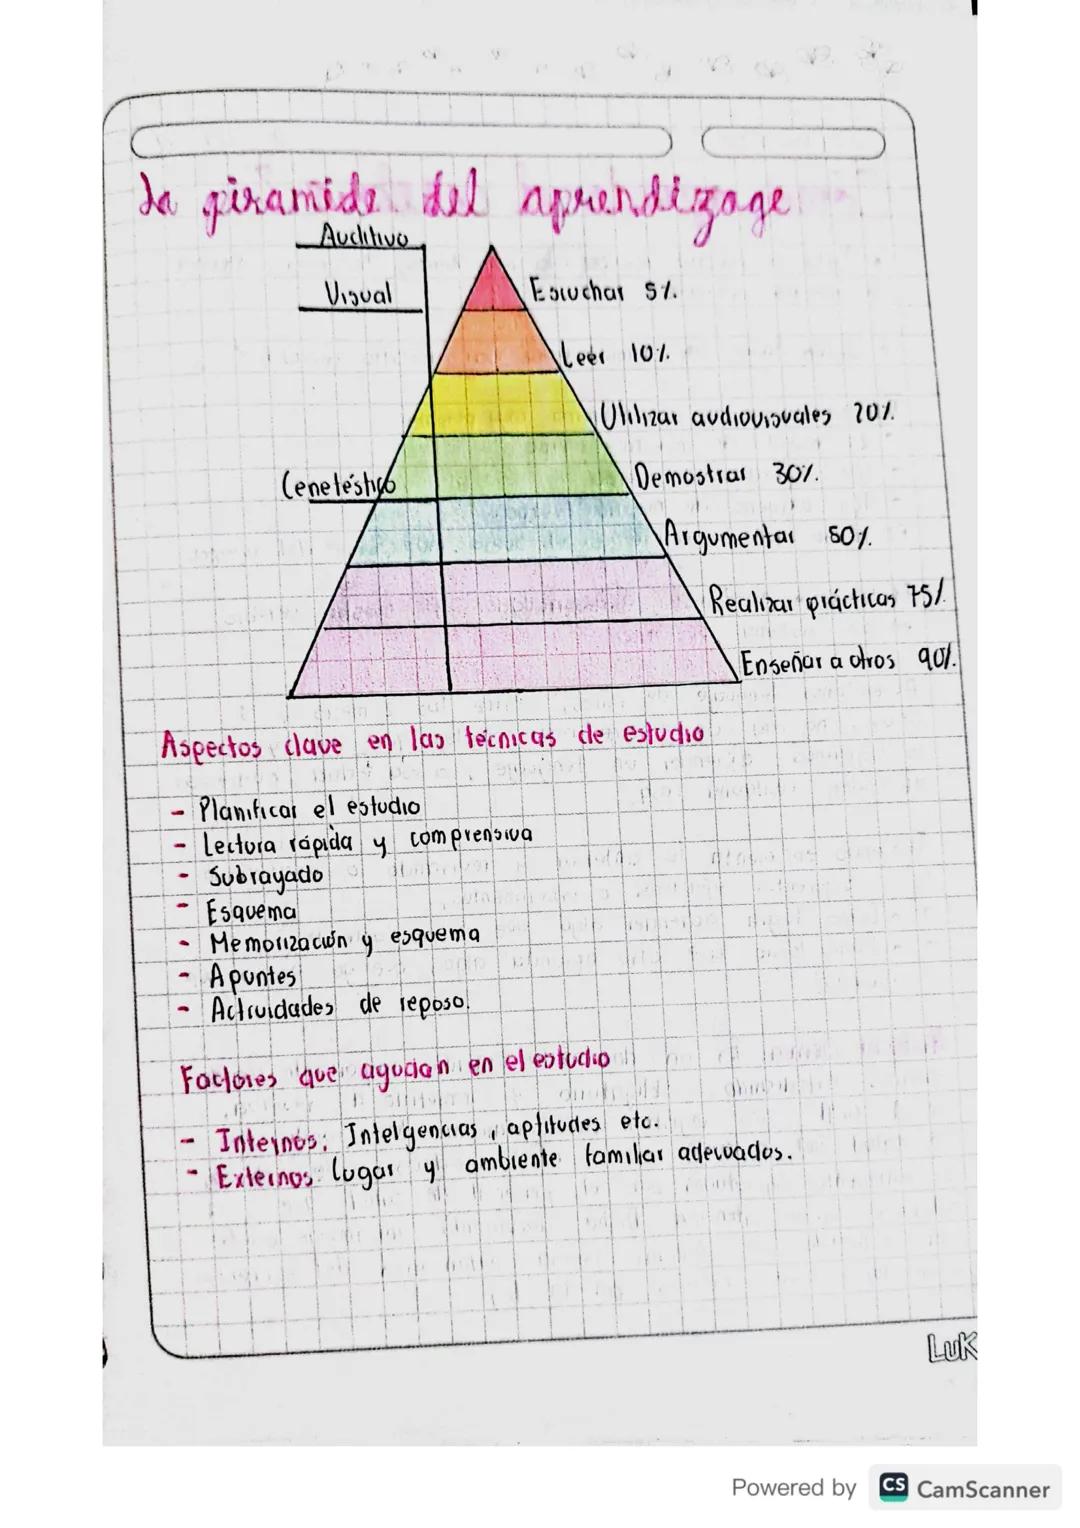 La piramide del aprendizage
Auditivo
Visual
Escuchar 5%.
Leer 10%.
Utilizar audiovisuales 20%.
Cenetéstico
Demostrar 30%.
Argumentar 50%.
Realizar prácticas 75%.
Enseñar a otros 90%.
Aspectos clave en las técnicas de estudio
- Planificar el estudio
- Lectura rápida y comprensiva
- Subrayado
- Esquema
- Memorización y esquema
- Apuntes
- Actividades de reposo.
Factores que ayudan en el estudio
- Internos: Intelgencias, aptitudes etc.
- Externos: lugar y ambiente familiar adecuados.
LuK
Powered by CS CamScanner